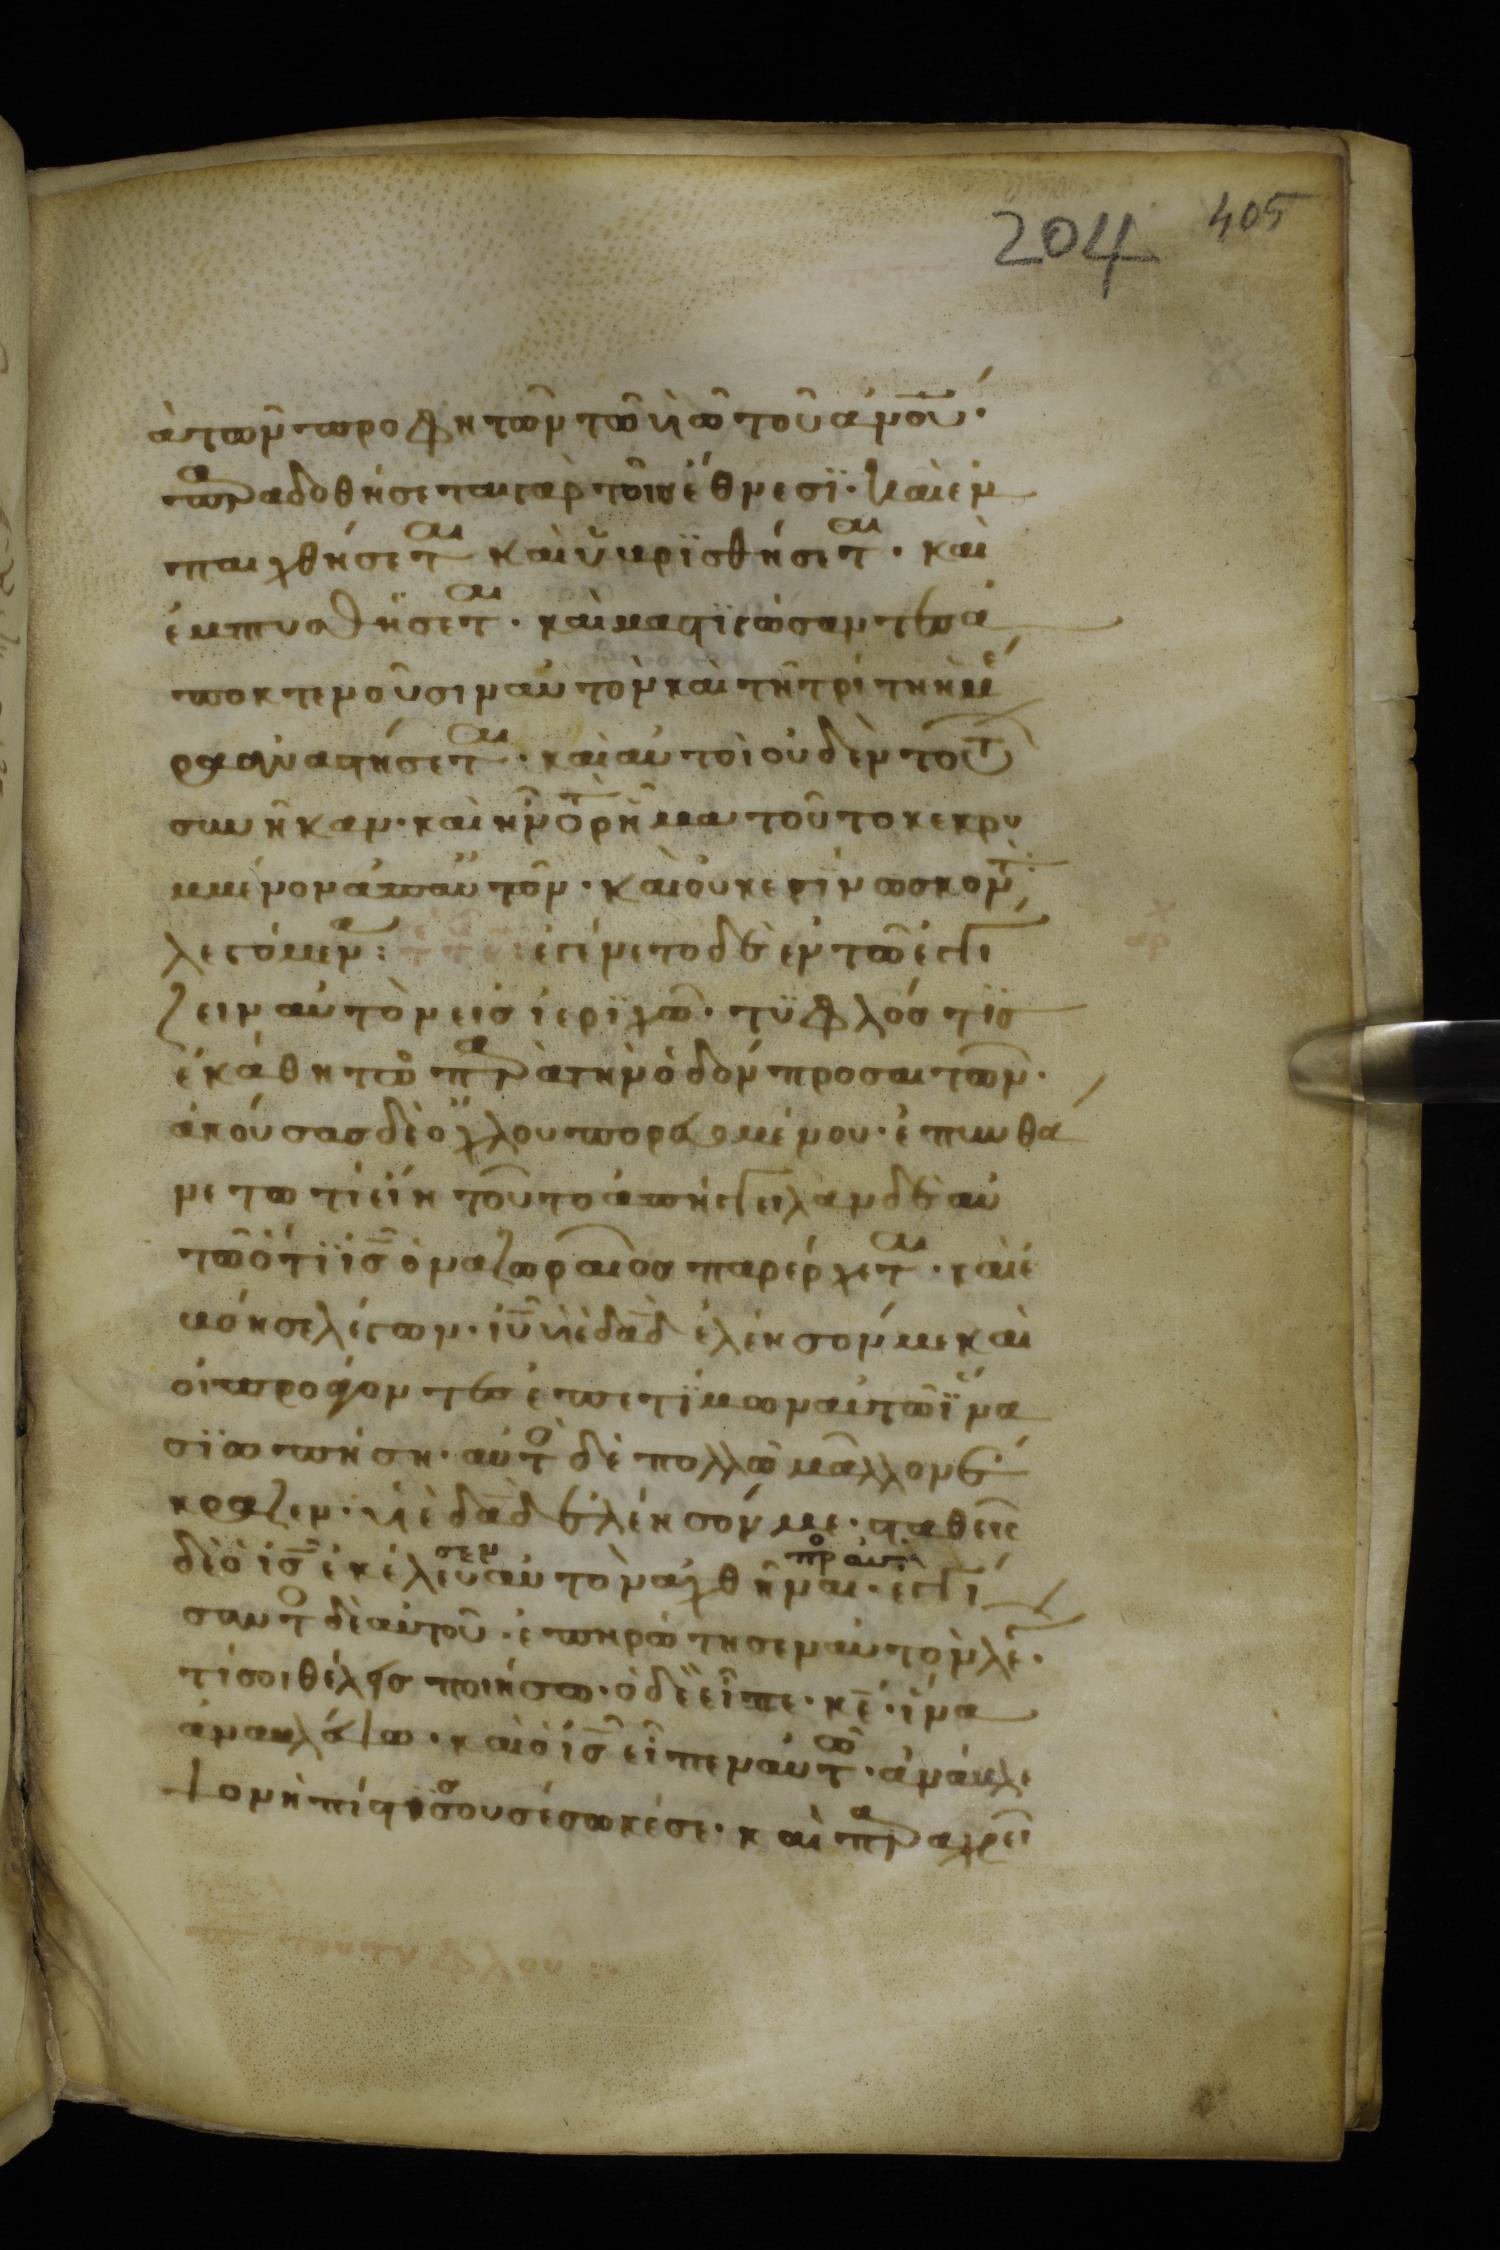 204 405
ὰ τῶν προφητῶν τῶ υῶ τοῦ ἀνου·
παραδοθήσεται γὰρ τοῖς ἔθνεσϊ· καὶ ἐμ
παιχθήσεται καὶ ὑβρϊσθήσεται· καὶ
ἐμπτυσθήσεται· καὶ μαστϊγώσαντες ἀ
ποκτενοῦσιν αὐτὸν καὶ τῆ τρίτη ἡμέ
ρα ἀναστήσεται· καὶ αὐτοὶ οὐδὲν τούτ
συνῆκαν· καὶ ἦν τὸ ρῆμα τοῦτο κεκρυ
μμένον ἀπ αὐτῶν· καὶ οὐκ ἐγίνωσκον τὰ
λεγόμενα: ἐγένετο δὲ ἐν τῶ ἐγγί
ζειν αὐτὸν εἰς ἱερϊχῶ· τϋφλός τϊς
ἐκάθητο παρὰ τὴν ὁδόν προσαιτῶν·
ἀκούσας δὲ ὄχλου πορευομένου· ἐπυνθά
νετω τί εἴη τοῦτο ἀπήγγειλαν δὲ αὐ
τῶ ὅτϊ ις ὁ ναζωραῖος παρέρχεται· καὶ ἐ
βόησε λέγων· ιυ υἱὲ δαδ ἐλέησόν με καὶ
οἱ προάγοντες ἐπετίμων αὐτῶ ἵνα
σϊωπήση· αὐτὸς δὲ πολλῶ μᾶλλον ἔ
κραζεν· υἱὲ δαδ ἐλέησόν με· σταθεὶς
δὲ ὁ ις ἐκέλευσεν αὐτὸν ἀχθῆναι πρὸς αὐτόν· ἐγγί
σαντος δὲ αὐτοῦ· ἐπηρώτησεν αὐτὸν λέγ·
τί σοι θέλεις ποιήσω· ὁ δὲ εἶπε· κε· ἵνα
ἀναβλέψω· καὶ ὁ ις εἶπεν αὐτῶ· ἀνάβλε
ψον ἡ πίστϊς σου σέσωκέ σε· καὶ παραχρῆ